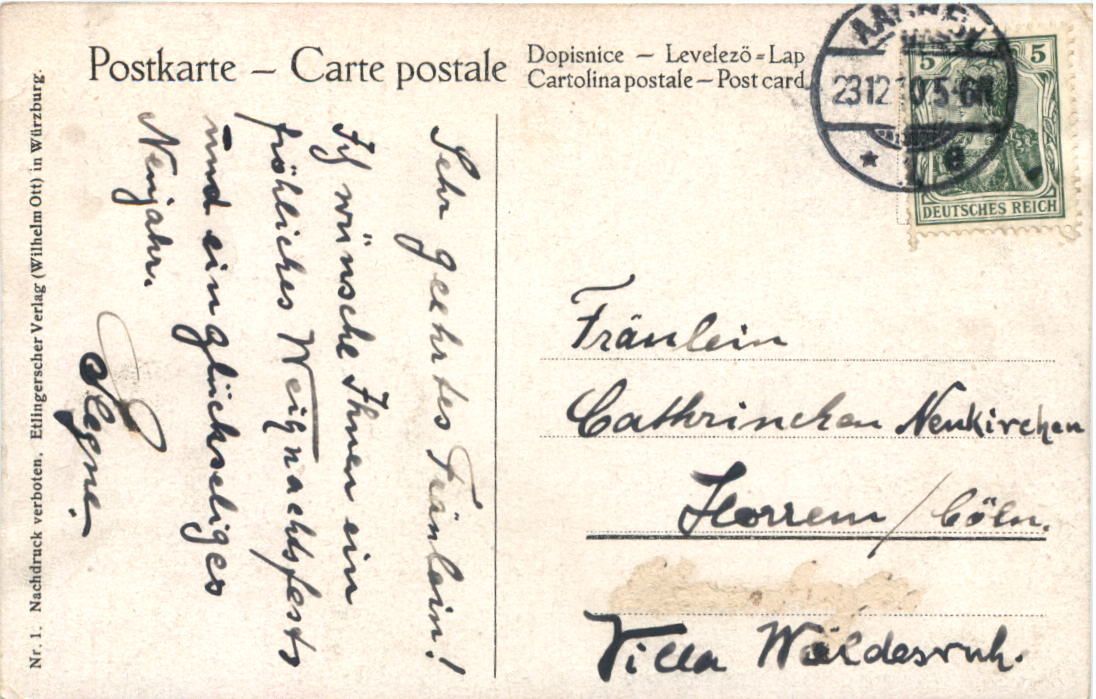 Postkarte – Carte postale
Dopisnice – Levelezö=Lap
Cartolina postale – Post card
23 12 10 5-6N
5
5
DEUTSCHES REICH
Sehr geehrtes Fräulein!
Ich wünsche Ihnen ein
fröhliches Weignachtsfests
und ein glückseliges
Neujahr.
Fräulein
Cathrinchen Neukirchen
Horrem / Cöln.
Villa Wäldesruh.
Nr. 1. Nachdruck verboten. Etlingerscher Verlag (Wilhelm Ott) in Würzburg.